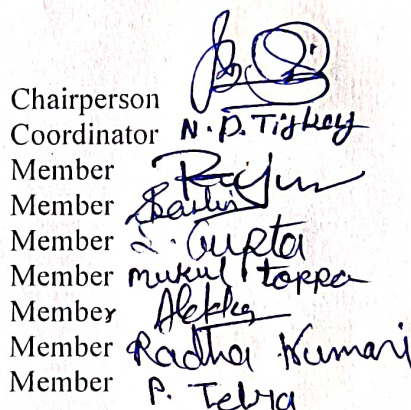 Chairperson
Coordinator N. D. Tigkey
Member
Member
Member Gupta
Member mukul toppo
Member Alekka
Member Radha Kumari
Member P. Tebra